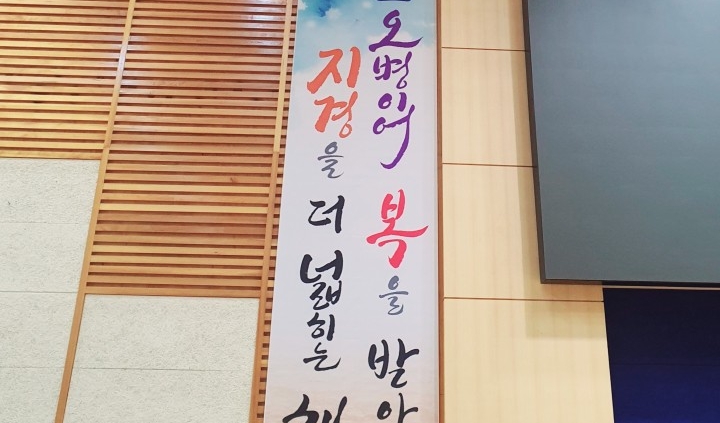 오병이어 복을 발아
지경을 더 넓히는 해